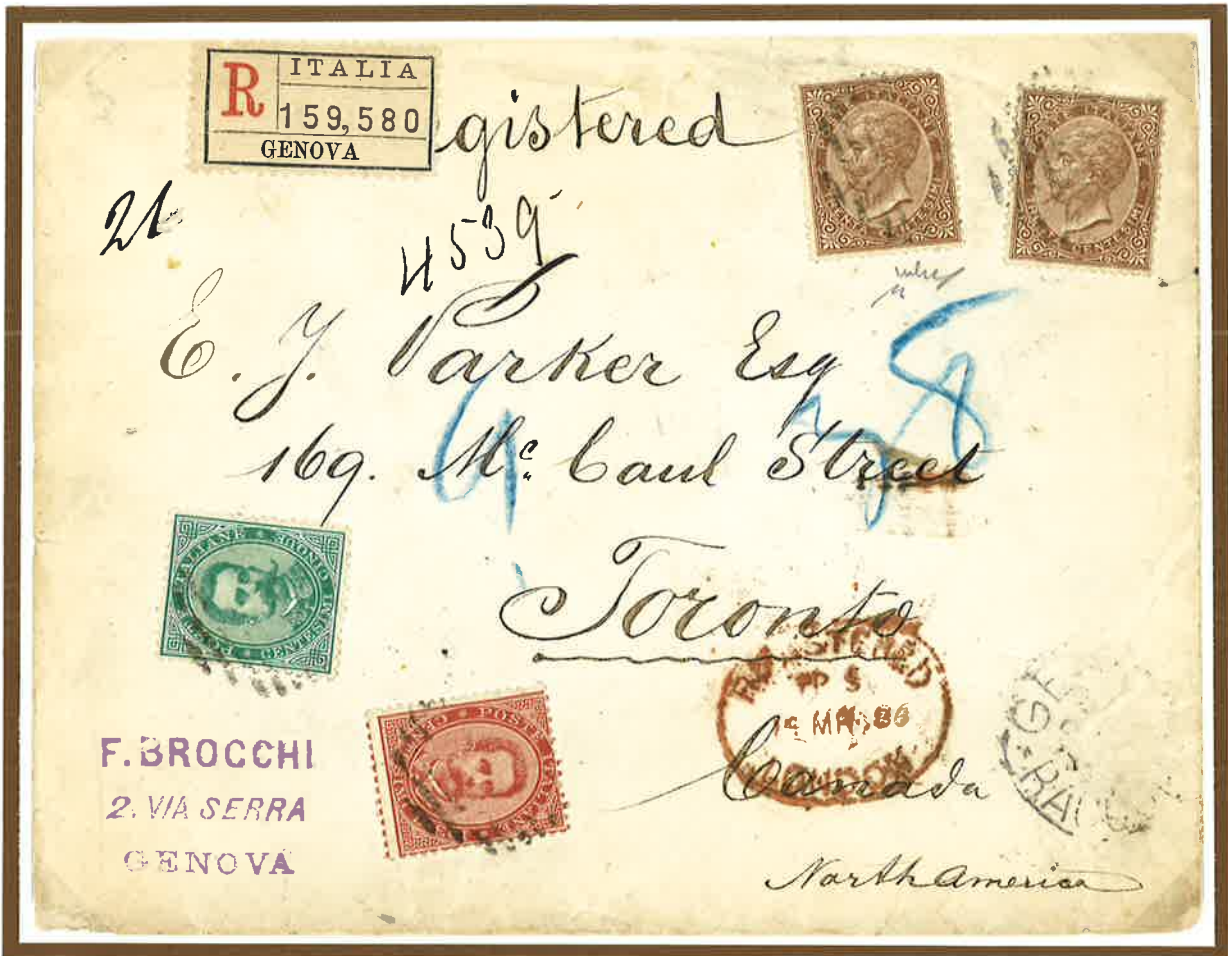 R ITALIA
159,580
GENOVA
gistered
21
4539
E. J. Parker Esq
169. Mc. Caul Street
Toronto
Canada
North America
REGISTERED
MR 86
LONDON
F. BROCCHI
2. VIA SERRA
GENOVA
POSTE ITALIANE